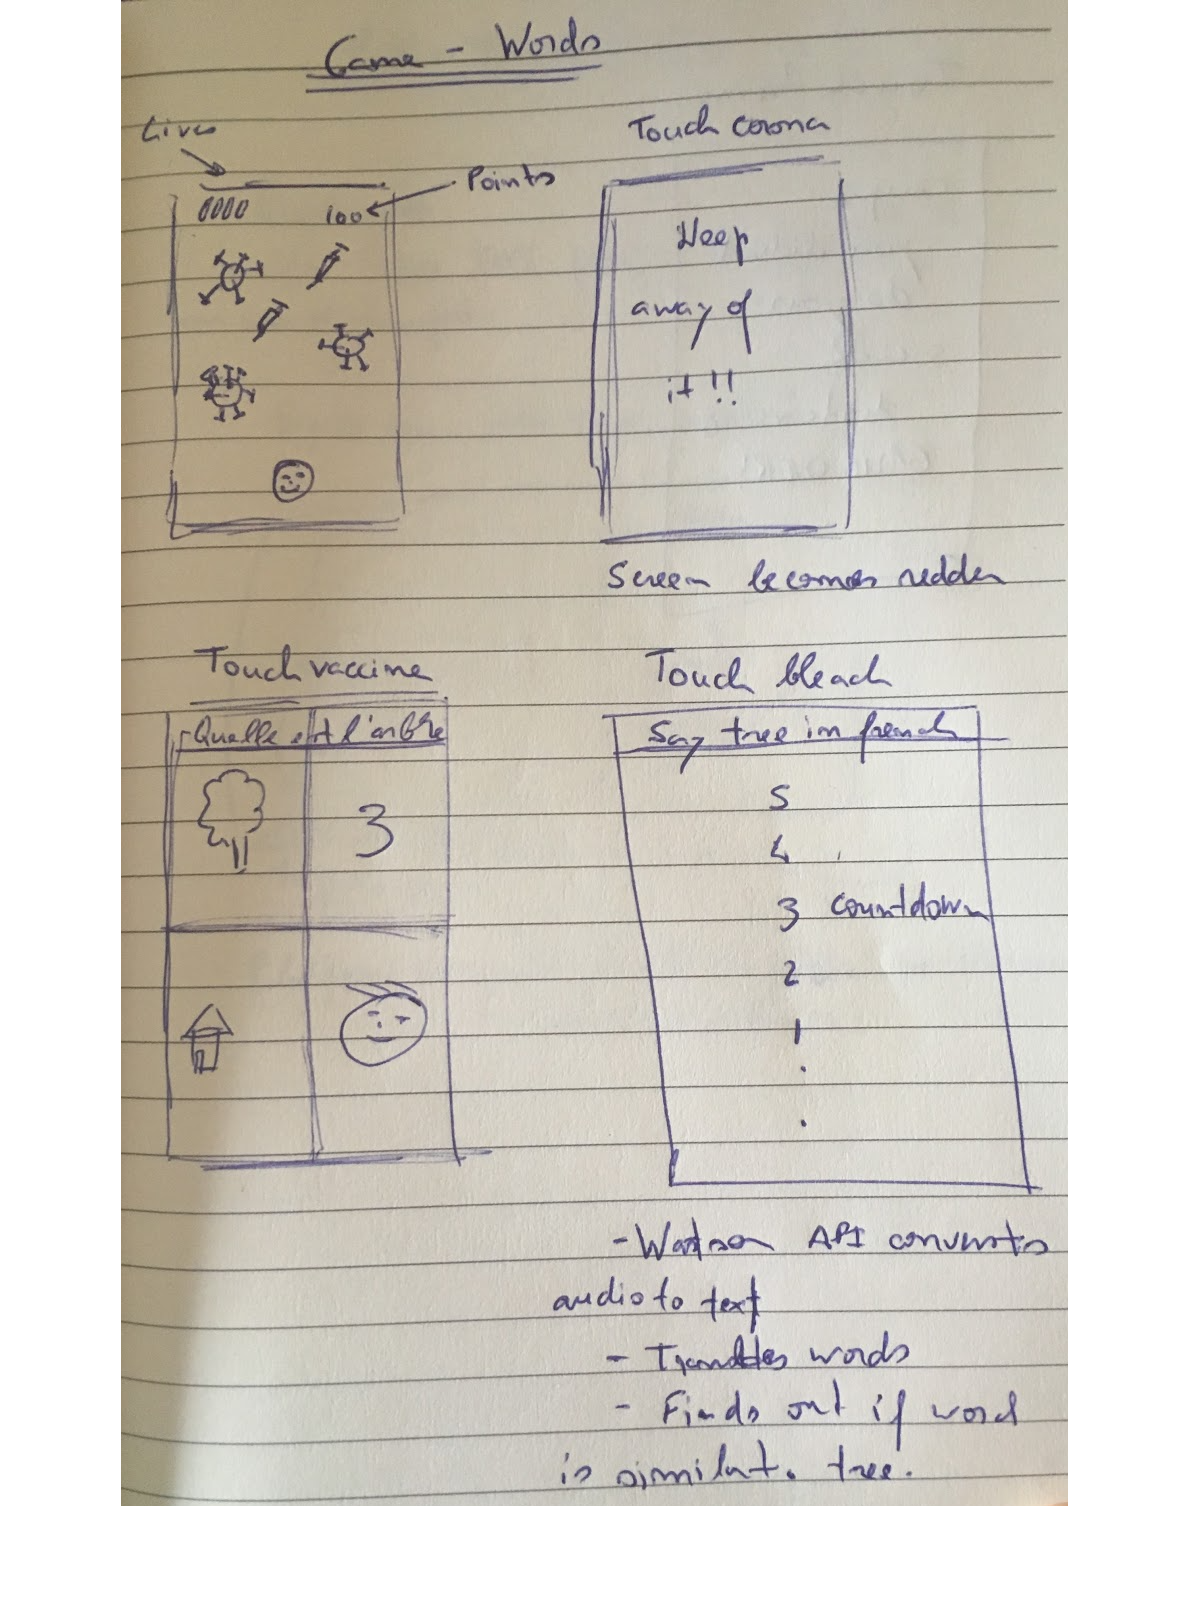 Game - Words
Lives
Points
100
Touch corona
Keep
away of
it !!
Screen becomes redder
Touch vaccine
Quelle est l'arbre
3
Touch bleach
Say tree in french
5
4
3 countdown
2
1
.
.
- Watson API converts
audio to text
- Translates words
- Finds out if word
is similat. tree.